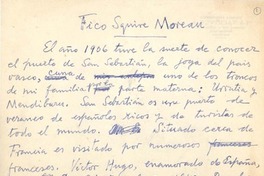 Fico Squire Morean
El año 1906 tuve la suerte de conocer
el puerto de San Sebastián, la joya del país
vasco, cuna de uno de los troncos
de mi familia por parte materna: Urrutia y
Mendiburu. San Sebastián es un puerto de
veraneo de españoles ricos y de turistas de
todo el mundo. Situado cerca de
Francia es visitado por numerosos franceses
franceses. Víctor Hugo, enamorado de España,